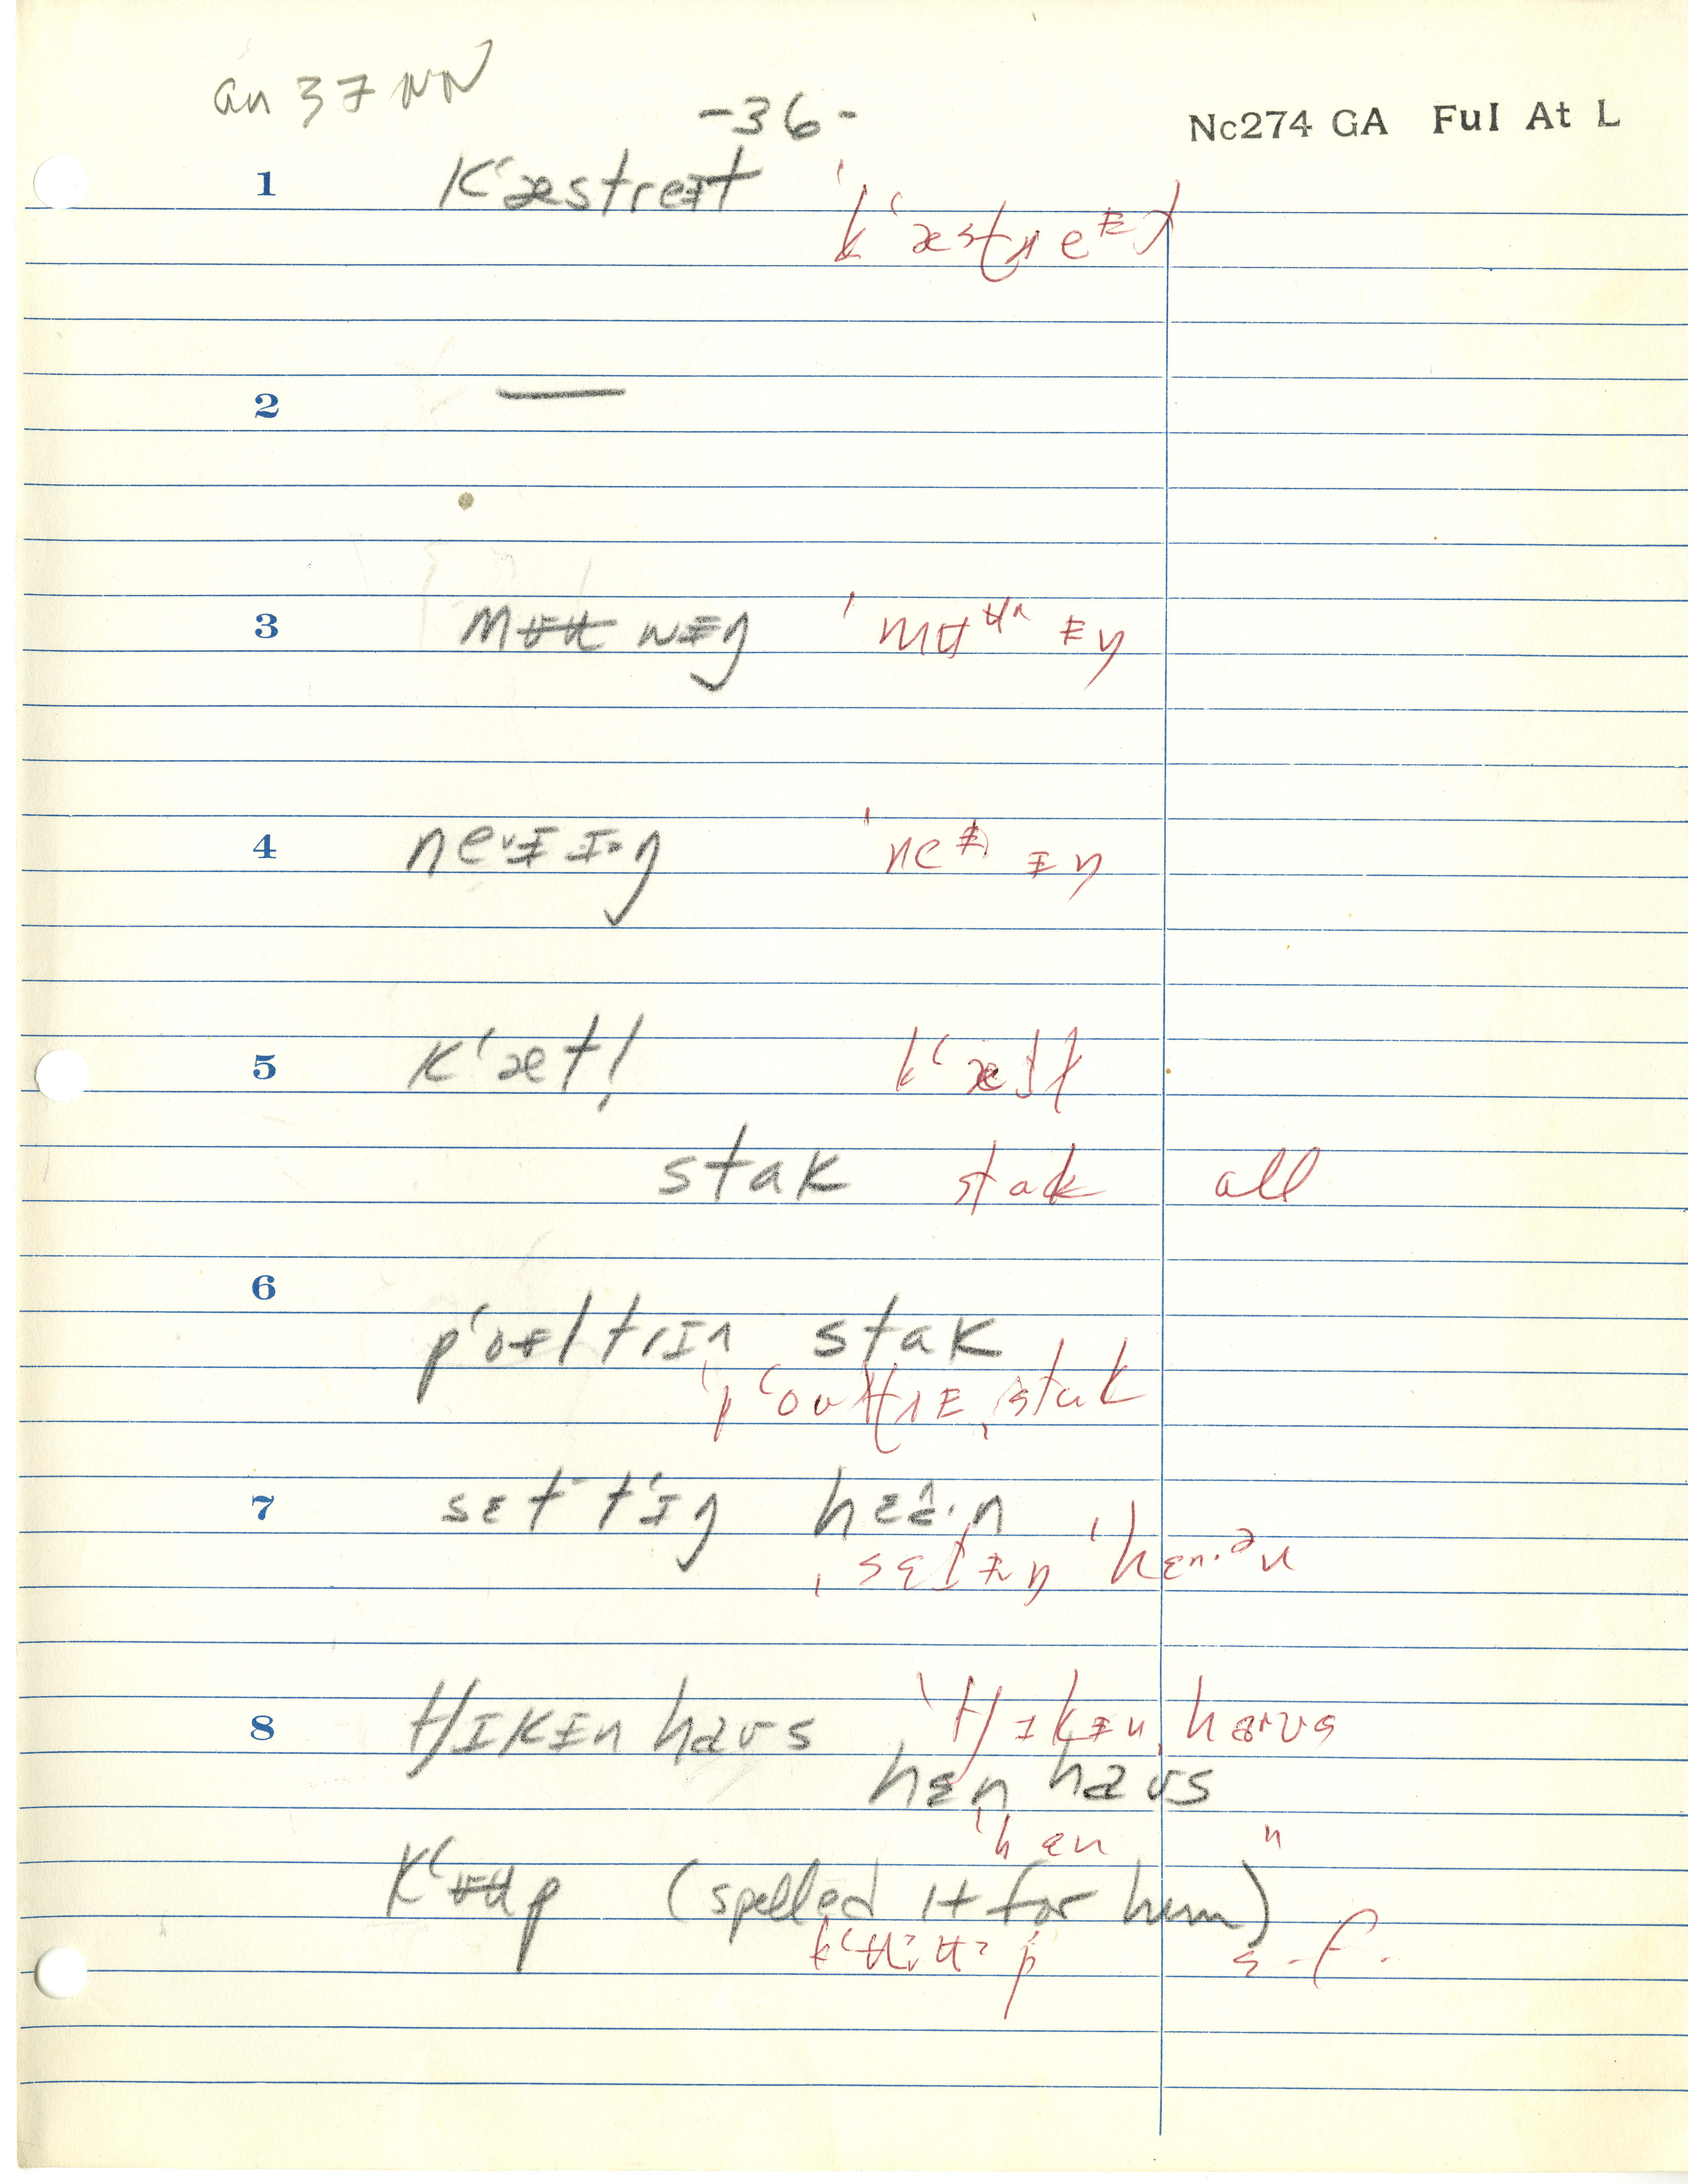 an 37 NN
-36-
Nc274 GA FuI At L
1 kʻæstreɪt ˈkʻæstreᵻt
2 —
3 mʉʉ wᵻŋ ˈmʉʉʌ ᵻŋ
4 neᵻɪŋ ˈneᵻ ᵻŋ
5 kʻæt! kʻæt̬ɫ
stak stak all
6 pʻoltrɪn stak
ˈpʻoʊltrɪˌstak
7 set tʻɪŋ hɛən
ˌsɛt̬ᵻŋ ˈhɛn·ən
8 tʃɪkɪn haʊs ˈtʃɪkᵻnˌhaʊs
hɛn haʊs
ˈhɛn "
kʻʉup (spelled it for him)
kʻʉ·ʉ·p s-f.